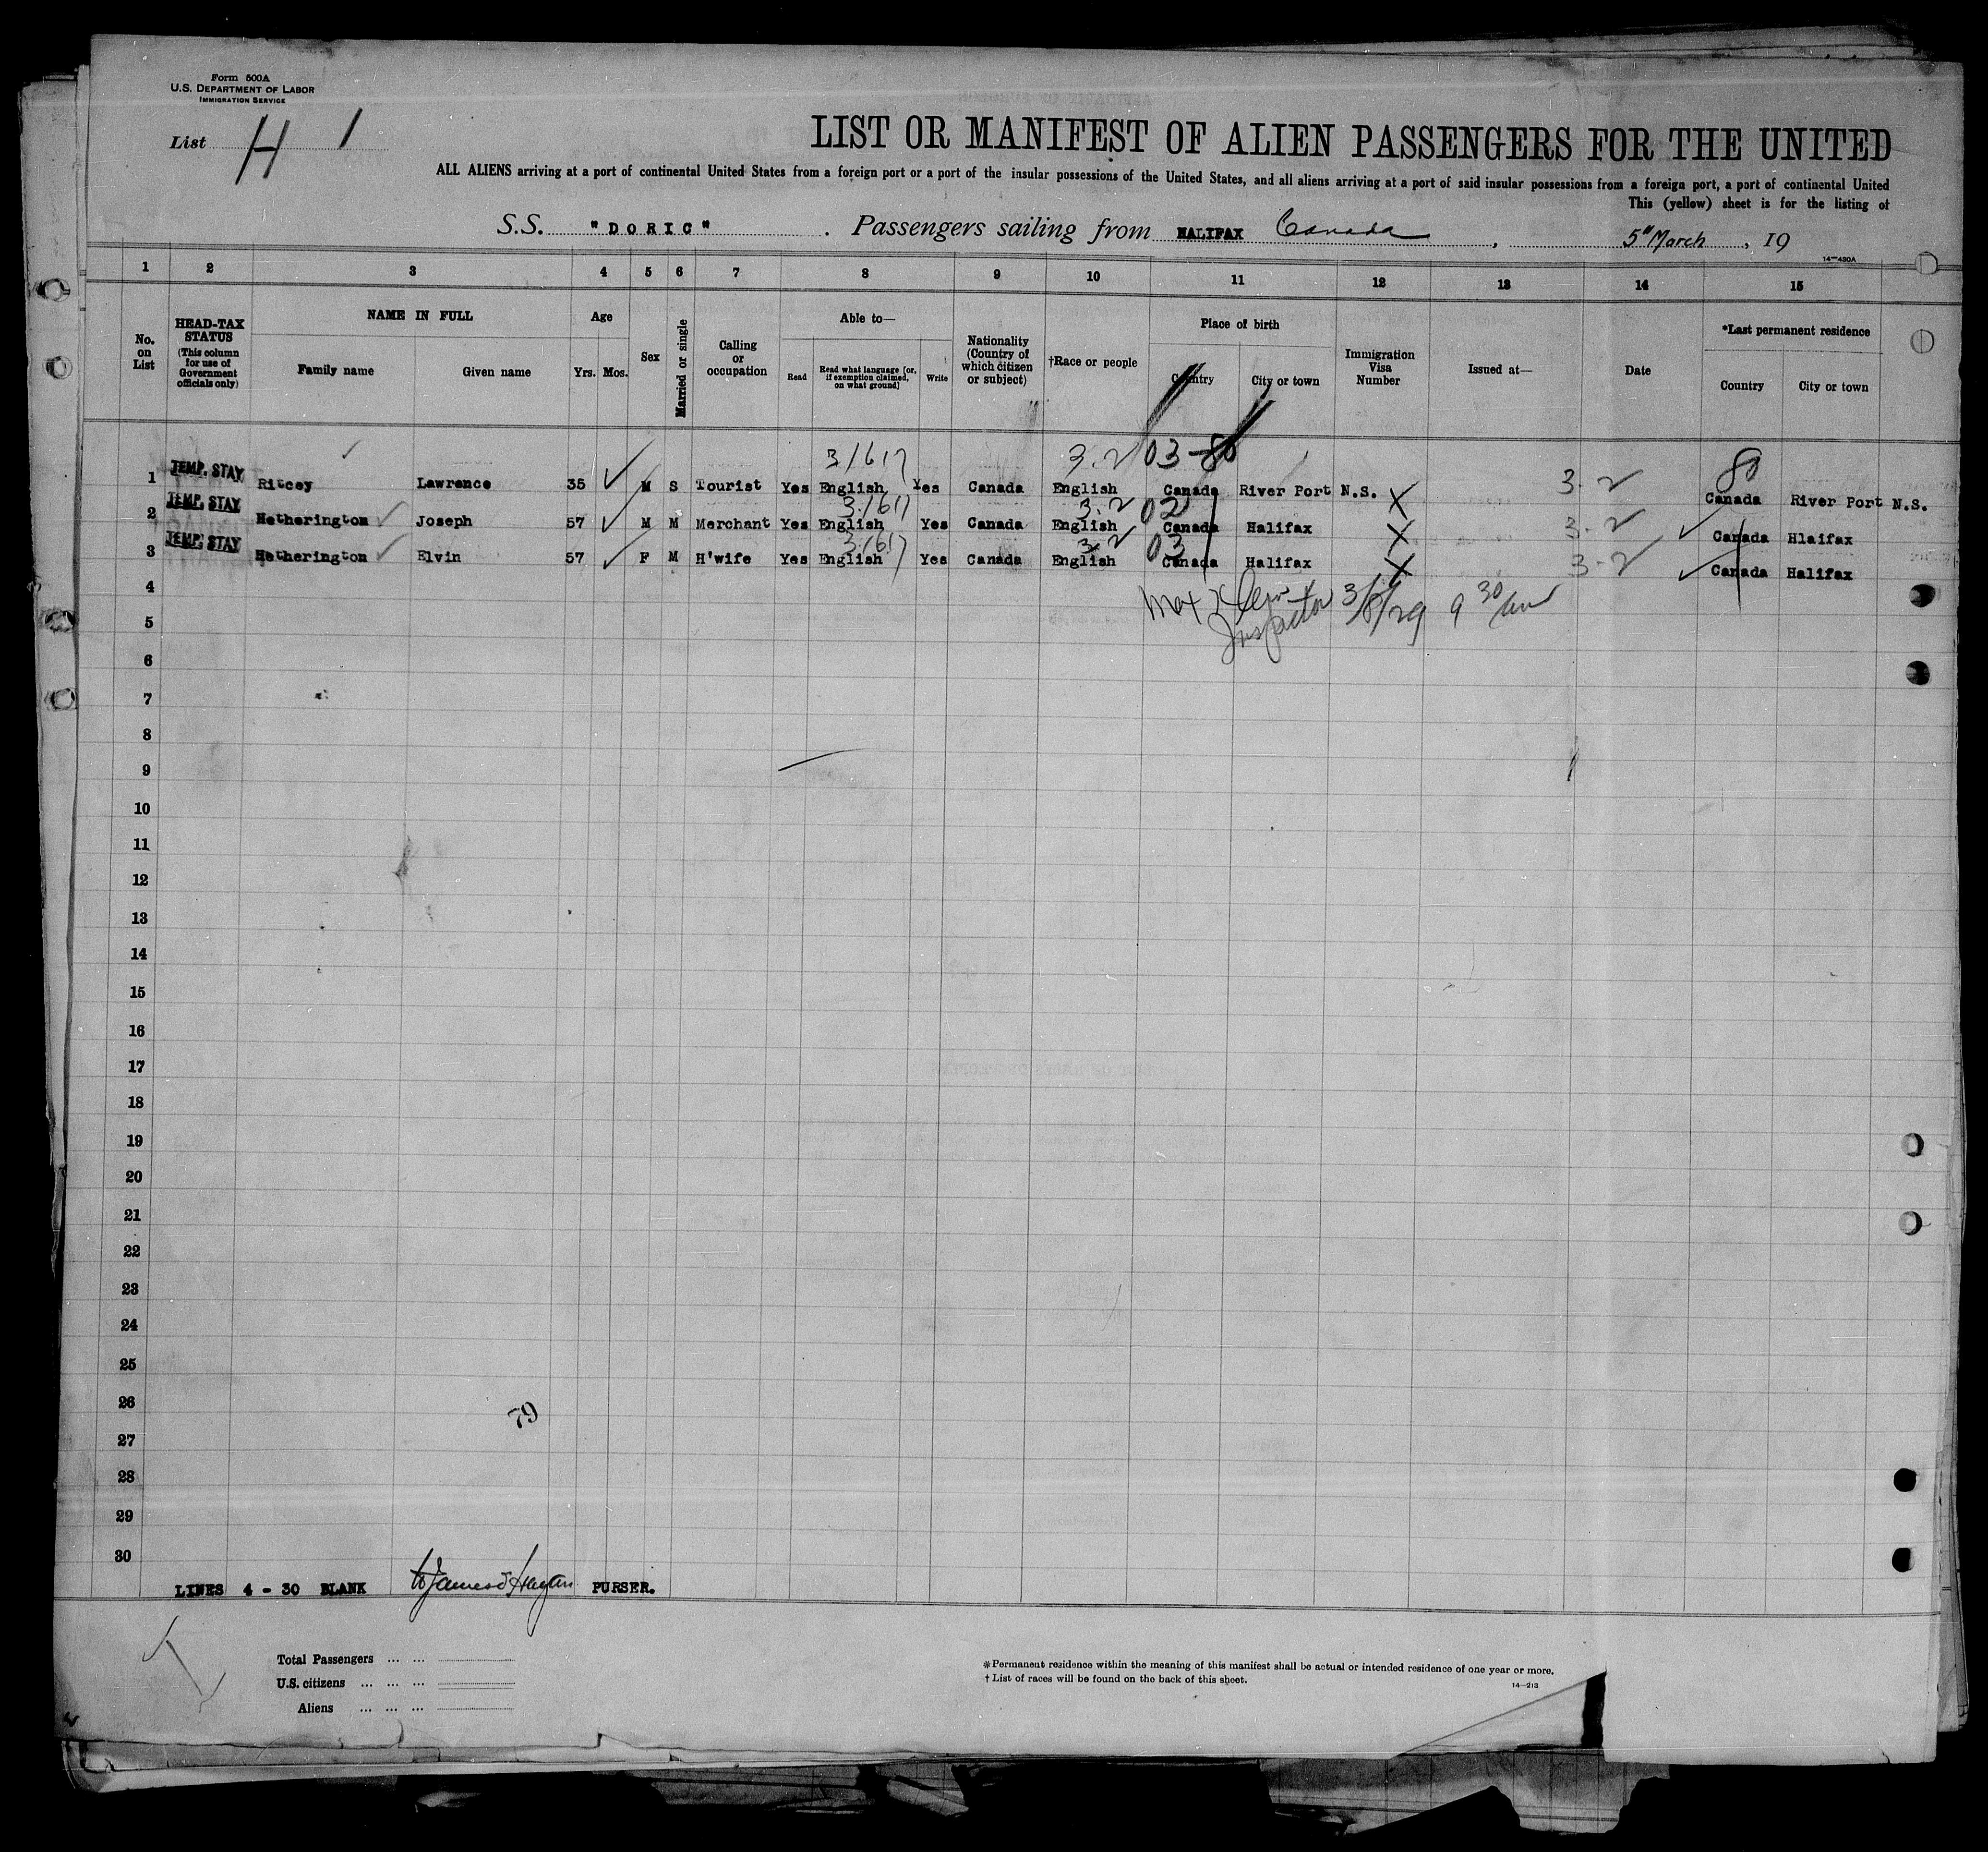 Form 500A
U.S. DEPARTMENT OF LABOR
IMMIGRATION SERVICE
List H 1
LIST OR MANIFEST OF ALIEN PASSENGERS FOR THE UNITED
ALL ALIENS arriving at a port of continental United States from a foreign port or a port of the insular possessions of the United States, and all aliens arriving at a port of said insular possessions from a foreign port, a port of continental United
This (yellow) sheet is for the listing of
S.S. "DORIC" . Passengers sailing from HALIFAX Canada , 5" March , 19
14—430A
1 2 3 4 5 6 7 8 9 10 11 12 13 14 15
No. on List
HEAD-TAX STATUS (This column for use of Government officials only)
NAME IN FULL
Family name Given name
Age
Yrs. Mos.
Sex
Married or single
Calling or occupation
Able to—
Read
Read what language [or, if exemption claimed, on what ground]
Write
Nationality (Country of which citizen or subject)
†Race or people
Place of birth
Country City or town
Immigration Visa Number
Issued at—
Date
*Last permanent residence
Country City or town
31617 3.2 03-80 3-2 80
1 TEMP. STAY Ritcey Lawrence 35 M S Tourist Yes English Yes Canada English Canada River Port N.S. X Canada River Port N.S.
31617 3.2 02 3-2
2 TEMP. STAY Hetherington Joseph 57 M M Merchant Yes English Yes Canada English Canada Halifax X Canada Hlaifax
31617 3.2 03 3-2
3 TEMP. STAY Hetherington Elvin 57 F M H'wife Yes English Yes Canada English Canada Halifax X Canada Halifax
4
Max 3/8/29 9 30 am
Inspector
5
6
7
8
9
10
11
12
13
14
15
16
17
18
19
20
21
22
23
24
25
26
79
27
28
29
30
LINES 4 - 30 BLANK PURSER.
Total Passengers ... ...
U.S. citizens ... ... ...
Aliens ... ... ...
*Permanent residence within the meaning of this manifest shall be actual or intended residence of one year or more.
†List of races will be found on the back of this sheet.
14—213